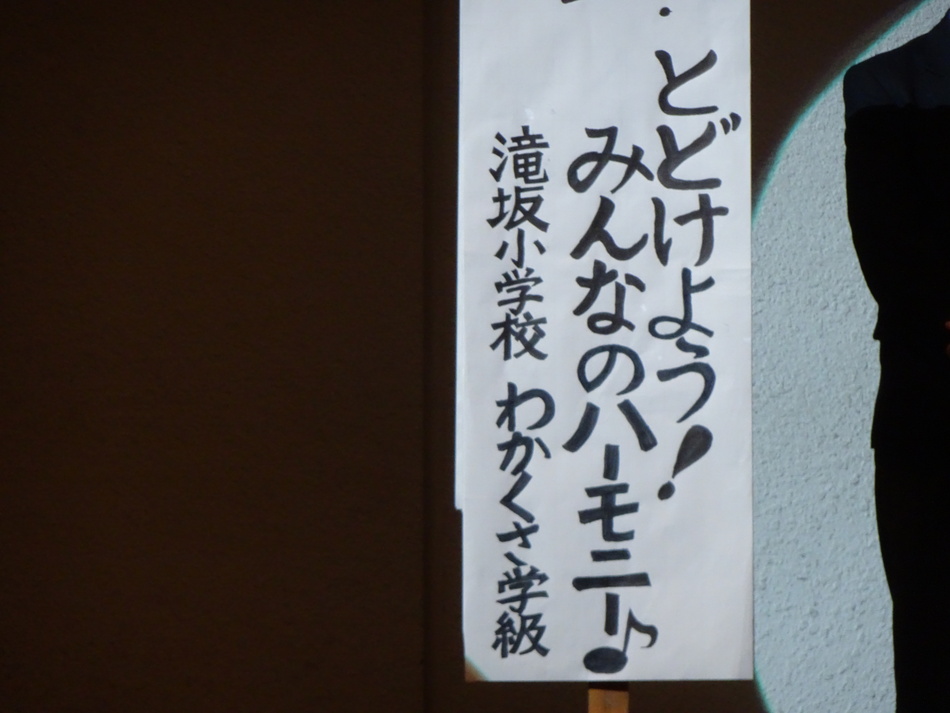 とどけよう!
みんなのハーモニー♪
滝坂小学校 わかくさ学級